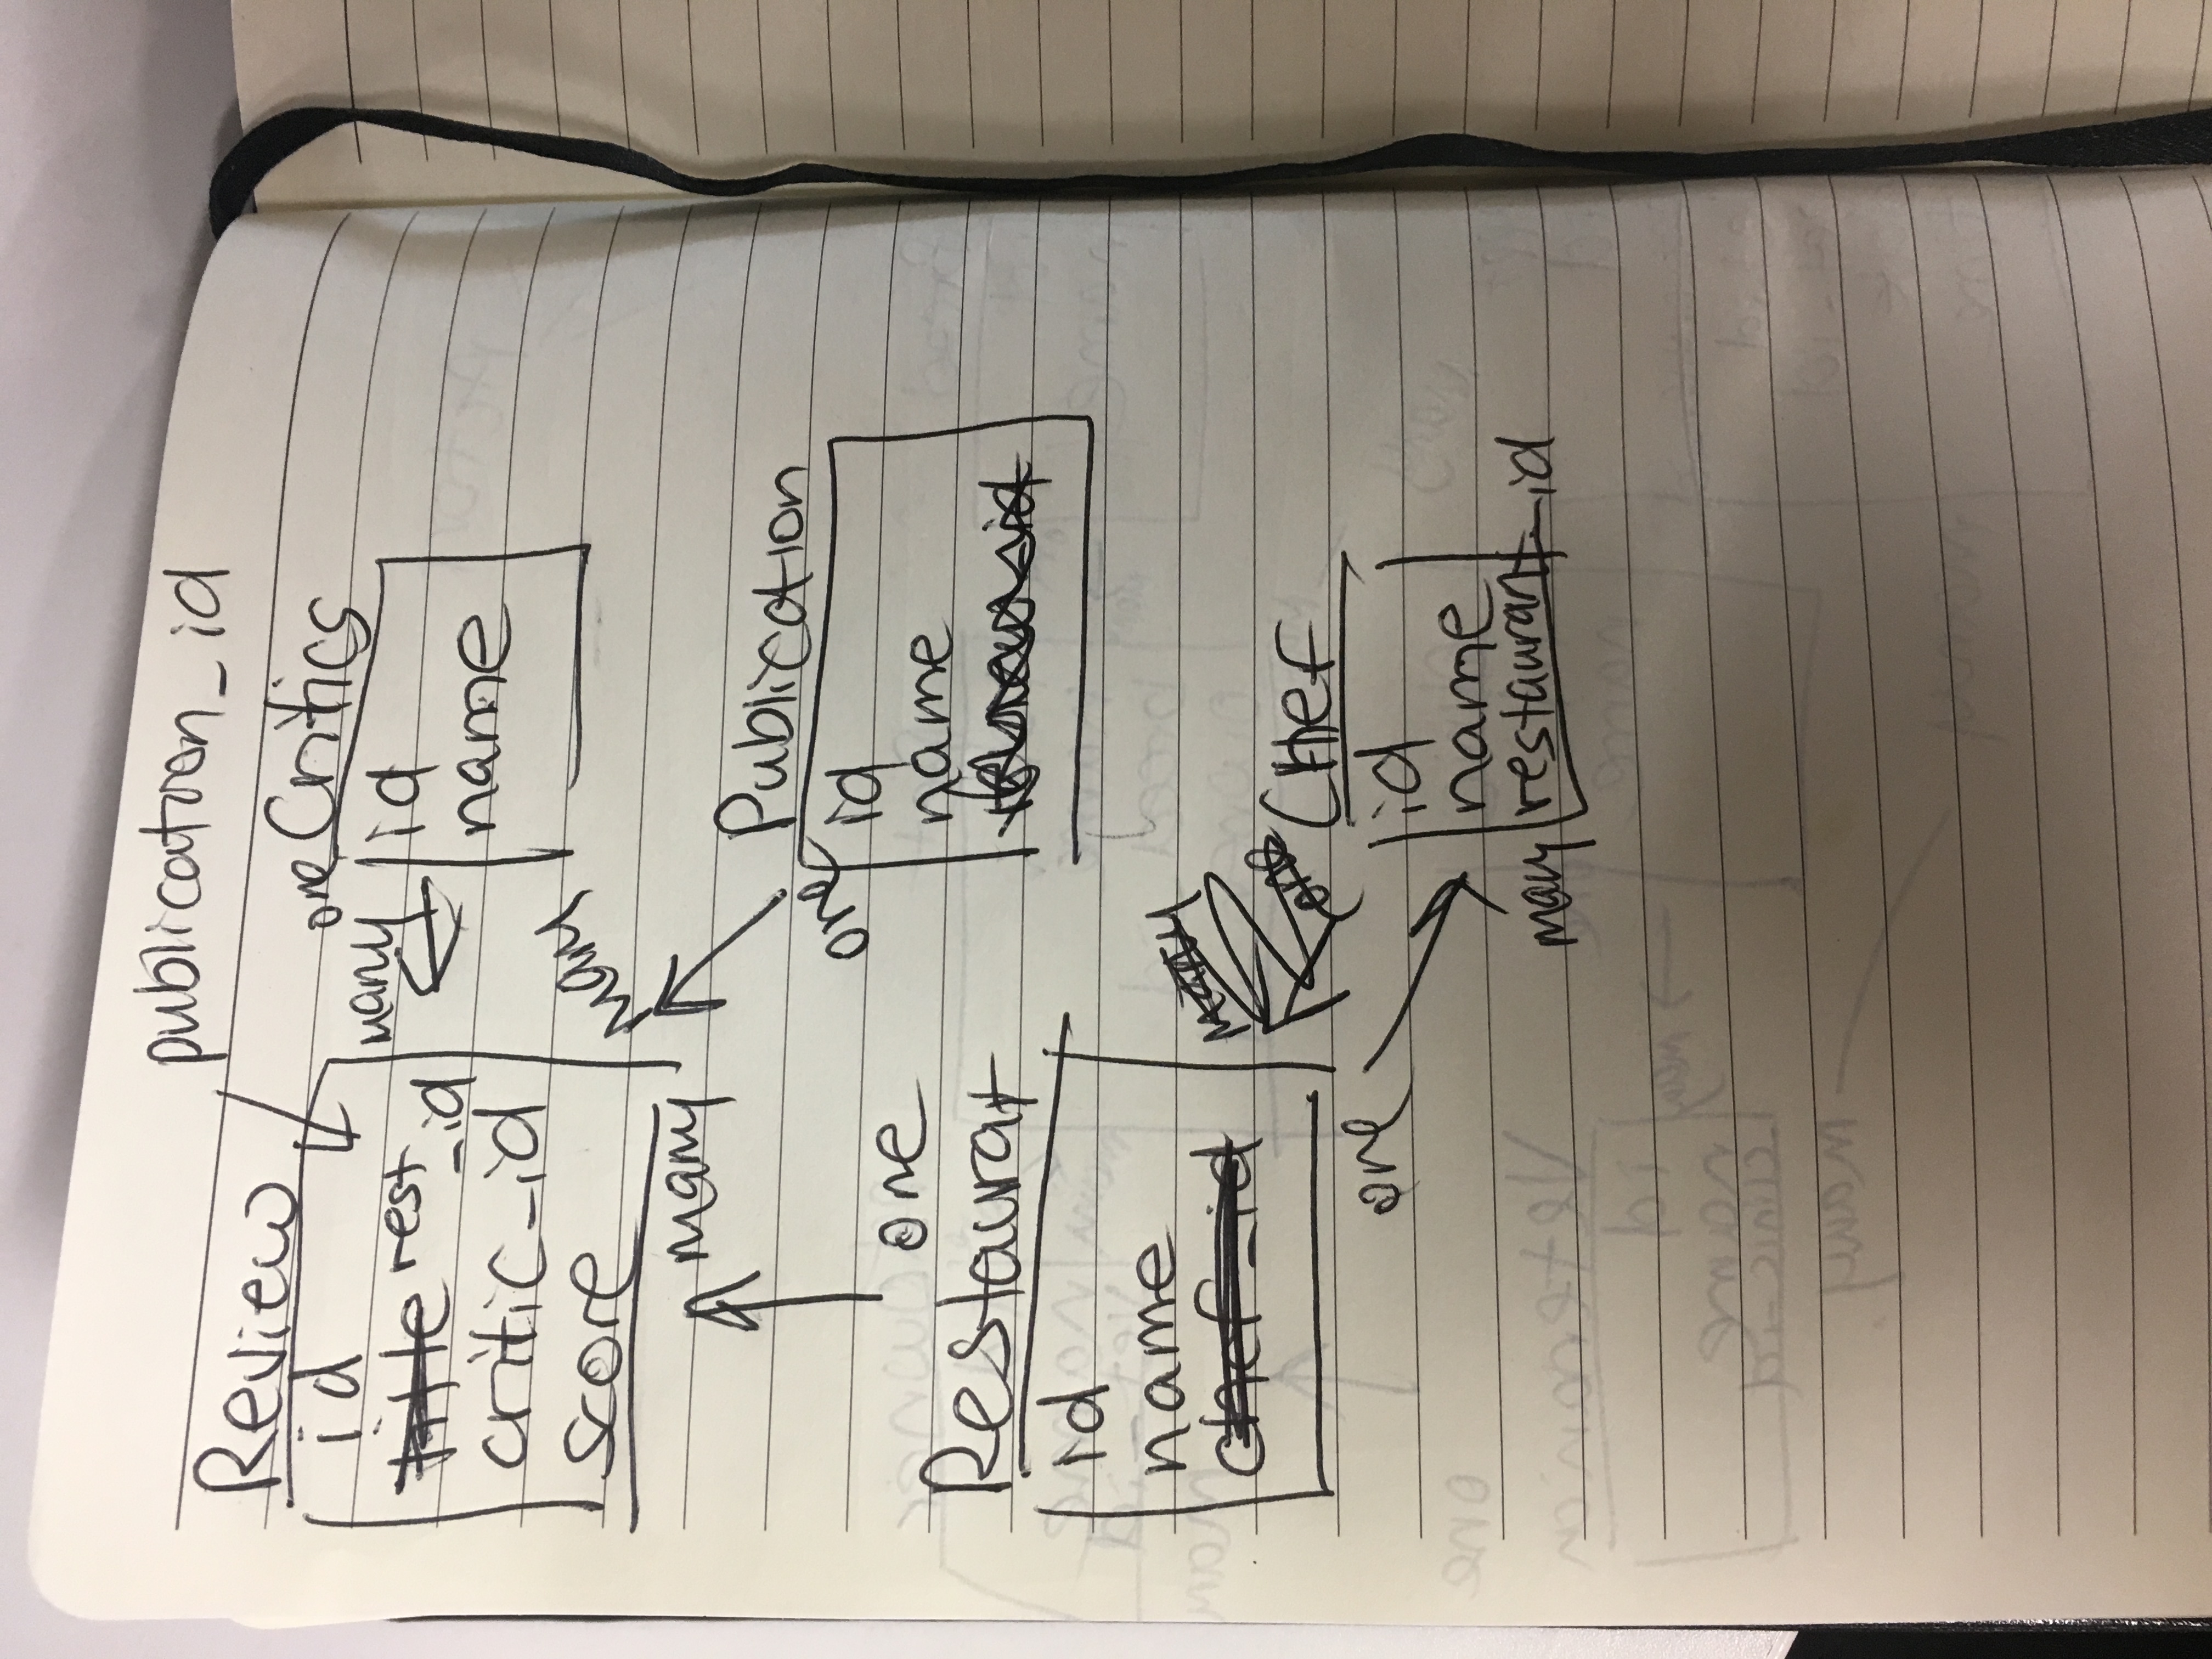 publication_id
Review
id
title rest
_id
critic_id
score
many
one Critics
many
id
name
many
Publication
one
id
name
one
Restaurat
id
name
chef_id
many
one
Chef
id
name
restaurant_id
one
many